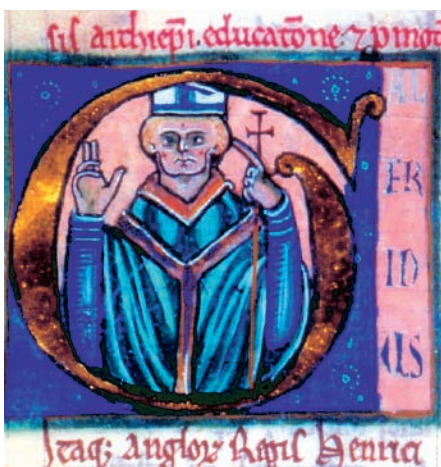 sis archiep̄i. educatōne. ⁊ p̄mot
AL
FR
ID
CUS
Itaq; Anglorꝝ Regis Henrici